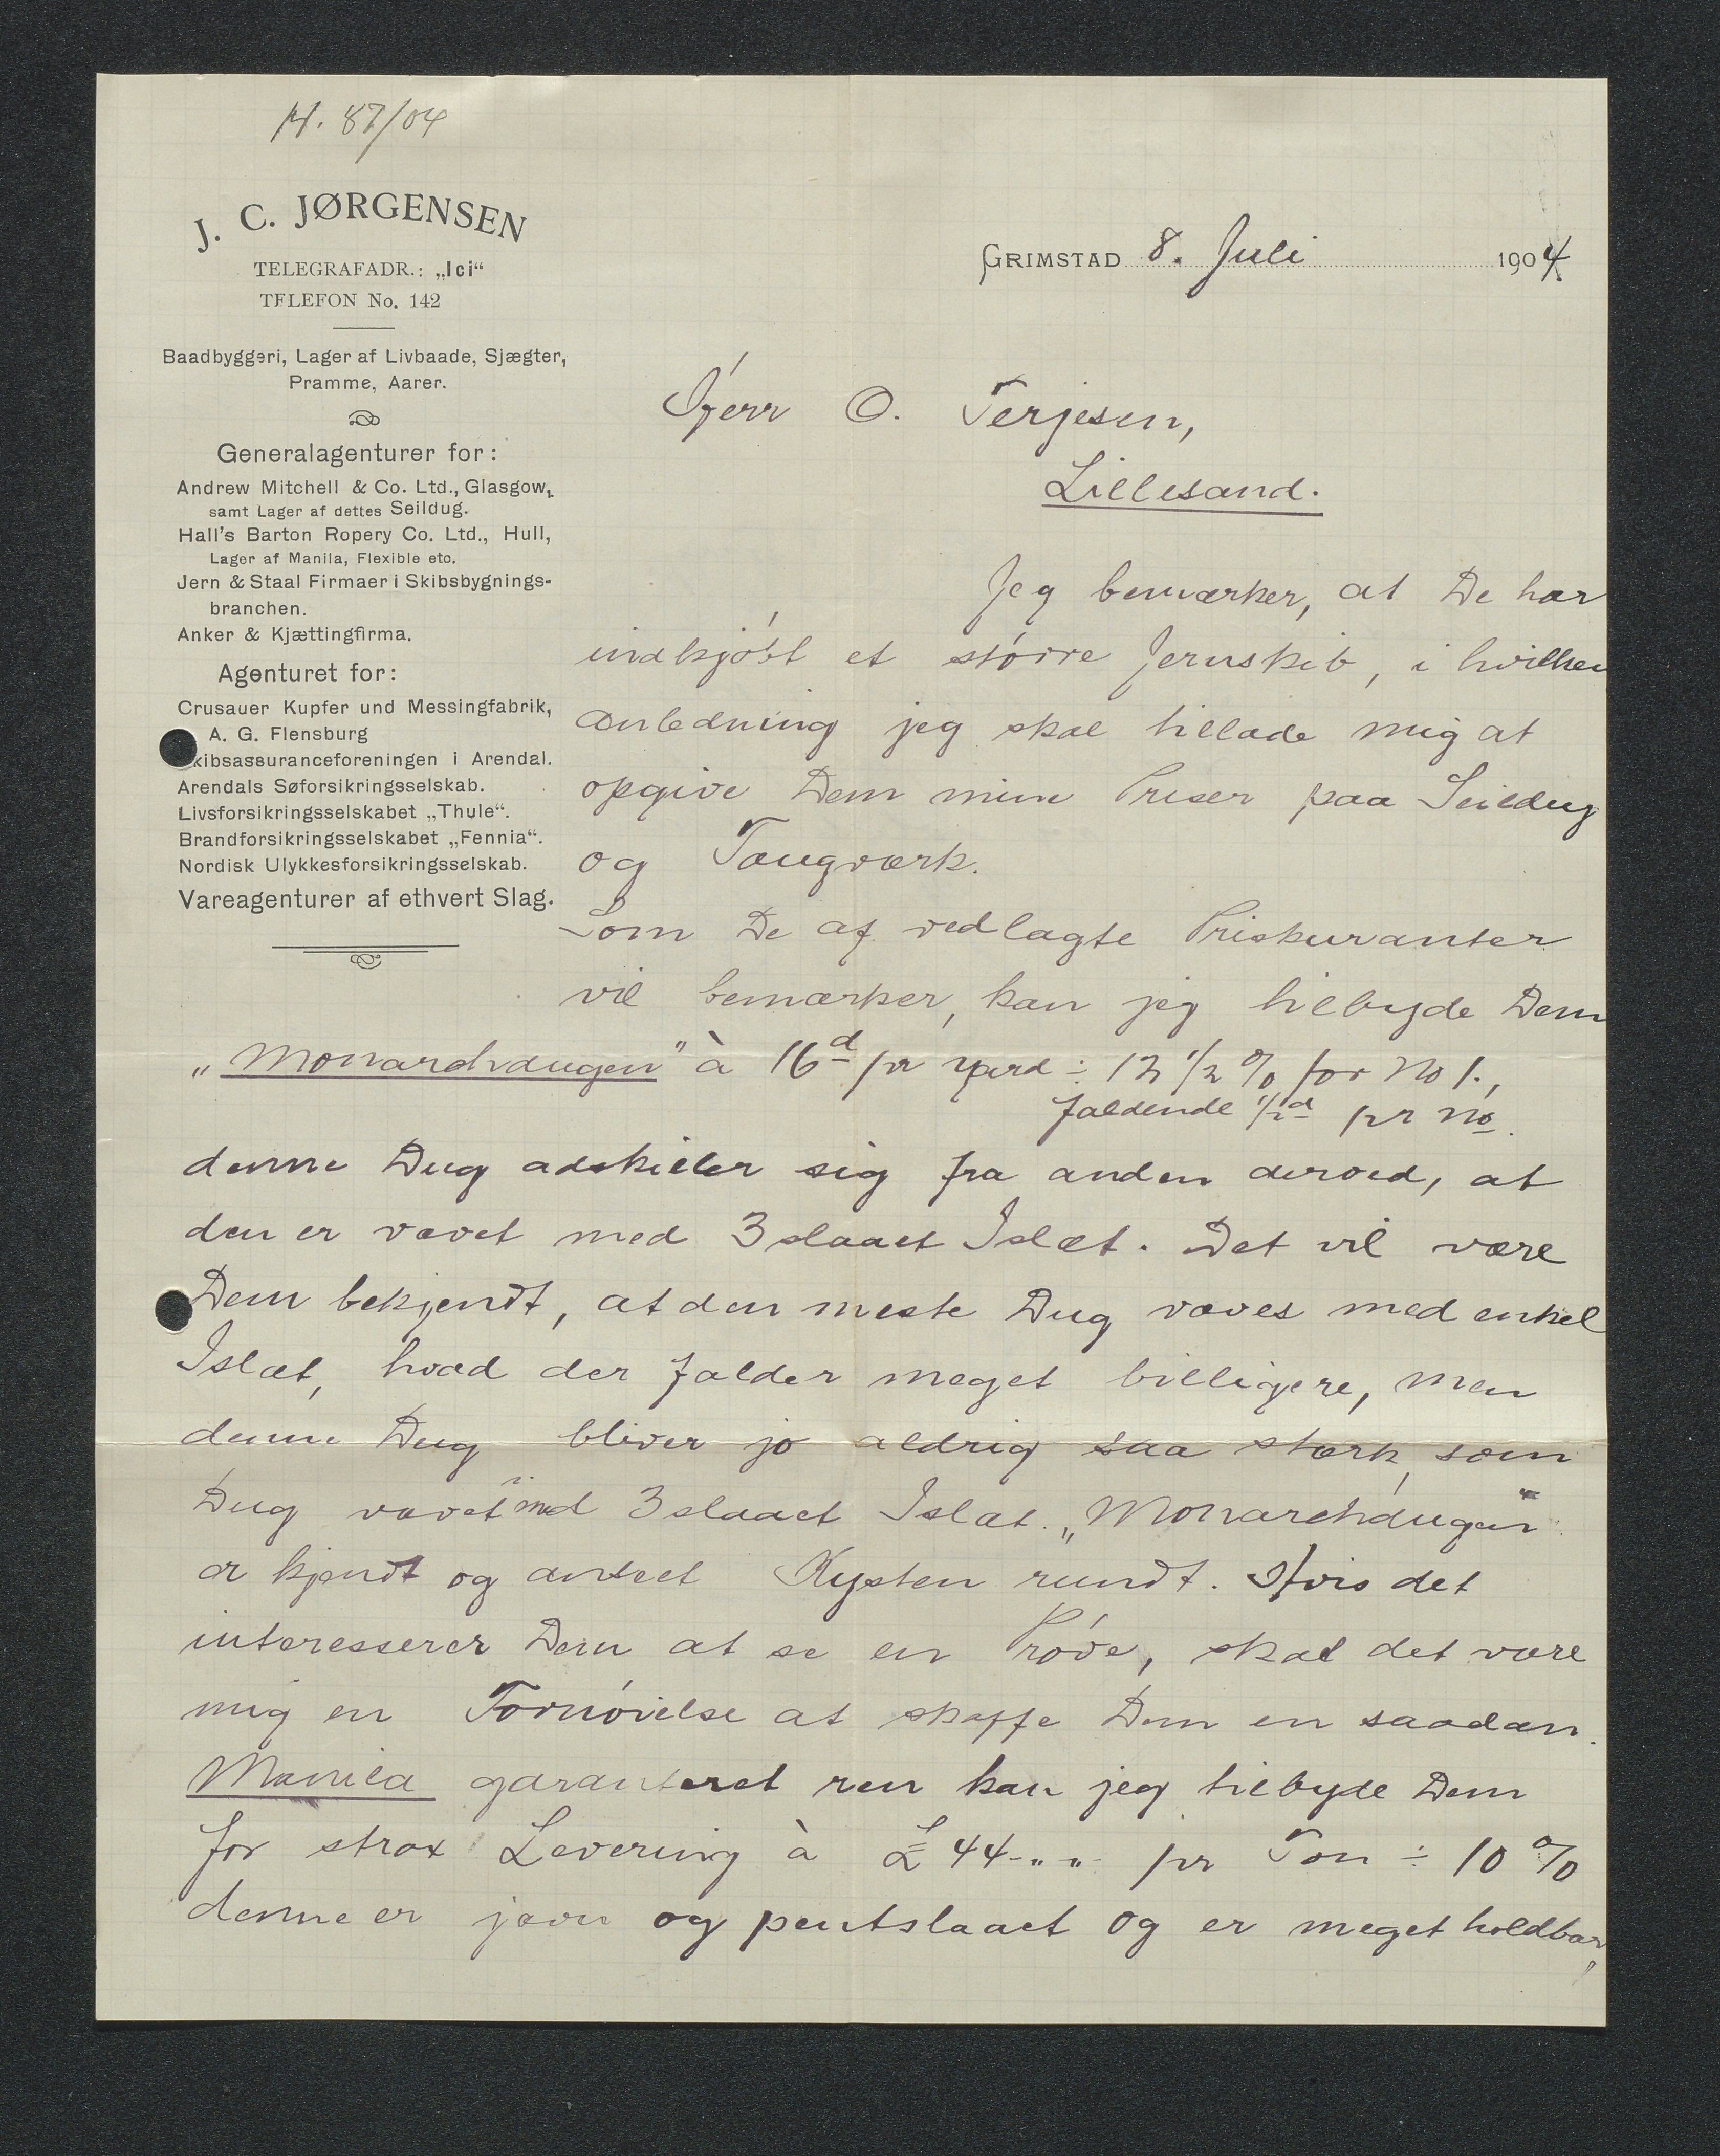 M. 87/04
J. C. JØRGENSEN
TELEGRAFADR.: „Ici“
TELEFON No. 142
Baadbyggeri, Lager af Livbaade, Sjægter,
Pramme, Aarer.
Generalagenturer for:
Andrew Mitchell & Co. Ltd., Glasgow,
samt Lager af dettes Seildug.
Hall's Barton Ropery Co. Ltd., Hull,
Lager af Manila, Flexible etc.
Jern & Staal Firmaer i Skibsbygnings-
branchen.
Anker & Kjættingfirma.
Agenturet for:
Crusauer Kupfer und Messingfabrik,
A. G. Flensburg
Skibsassuranceforeningen i Arendal.
Arendals Søforsikringsselskab.
Livsforsikringsselskabet „Thule“.
Brandforsikringsselskabet „Fennia“.
Nordisk Ulykkesforsikringsselskab.
Vareagenturer af ethvert Slag.
GRIMSTAD 8. Juli 1904
Herr O. Terjesen,
Lillesand.
Jeg bemærker, at De har
indkjøbt et større Jernskib, i hvilken
Anledning jeg skal tillade mig at
opgive Dem mine Priser paa Seildug
og Taugværk.
Som De af vedlagte Priskuranter
vil bemærker, kan jeg tilbyde Dem
„Monarchdugen" à 16d pr yard ÷ 12 1/2 % for No 1.,
faldende 1/2d pr No.
denne Dug adskiller sig fra anden derved, at
den er vævet med 3slaaet Islæt. Det vil være
Dem bekjendt, at den meste Dug væves med enkel
Islæt, hvad der falder meget billigere, men
denne Dug bliver jo aldrig saa stærk, som
Dug vævet med 3slaaet Islæt. „Monarchdugen"
er kjendt og anseet Kysten rundt. Hvis det
interesserer Dem at se en Prøve, skal det være
mig en Fornøielse at skaffe Dem en saadan.
Manila garanteret ren kan jeg tilbyde Dem
for strax Levering à £ 44-"-" pr Ton ÷ 10 %
denne er jævn og pentslaaet og er meget holdbar,